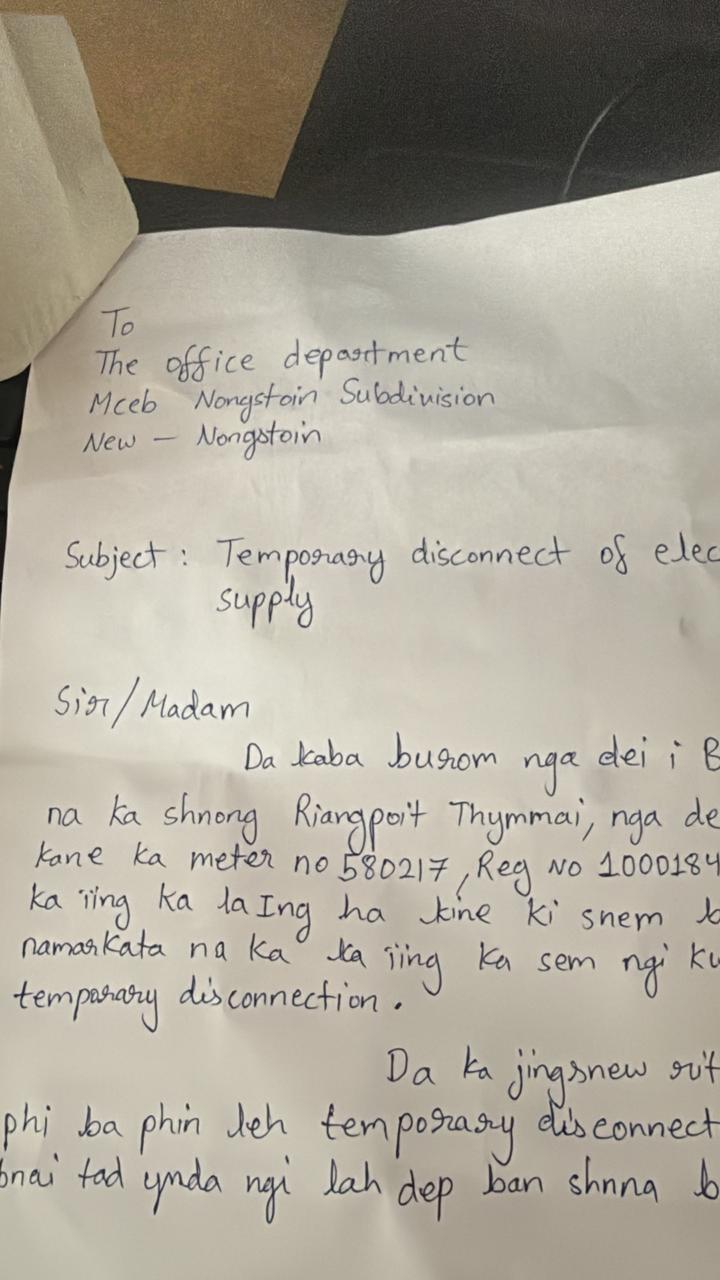 To
The office department
Mceb Nongstoin Subdivision
New - Nongstoin
Subject : Temporary disconnect of elec
supply
Sir/Madam
Da kaba burom nga dei i B
na ka shnong Riangpoit Thymmai, nga de
kane ka meter no 580217, Reg No 1000184
ka ïing ka la Ing ha kine ki snem b
namarkata na ka ka ïing ka sem ngi ku
temparary disconnection.
Da ka jingsnew rit
phi ba phin leh temporary disconnect
bnai tad ynda ngi lah dep ban shnna b